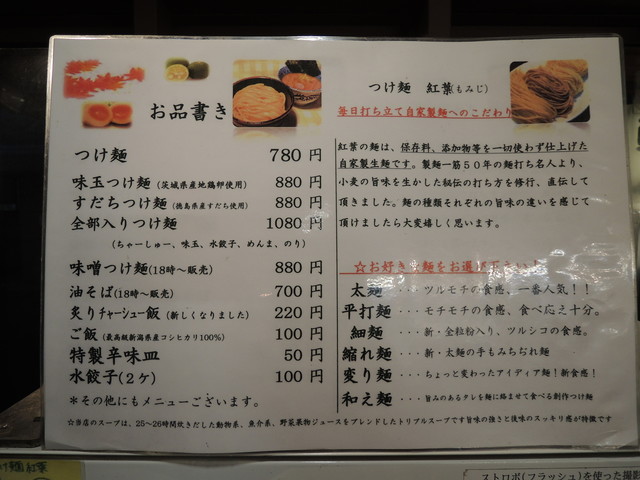 お品書き
つけ麺 780 円
味玉つけ麺 (茨城県産地鶏卵使用) 880 円
すだちつけ麺 (徳島県産すだち使用) 880 円
全部入りつけ麺 1080 円
(ちゃーしゅー、味玉、水餃子、めんま、のり)
味噌つけ麺(18時～販売) 880 円
油そば(18時～販売) 700 円
炙りチャーシュー飯 (新しくなりました) 220 円
ご飯 (最高級新潟県産コシヒカリ100%) 100 円
特製辛味皿 50 円
水餃子(2ケ) 100 円
＊その他にもメニューございます。
つけ麺 紅葉(もみじ)
毎日打ち立て自家製麺へのこだわり
紅葉の麺は、保存料、添加物等を一切使わず仕上げた
自家製生麺です。製麺一筋５０年の麺打ち名人より、
小麦の旨味を生かした秘伝の打ち方を修行、直伝して
頂きました。麺の種類それぞれの旨味の違いを感じて
頂けましたら大変嬉しく思います。
☆お好きな麺をお選び下さい！
太麺 ・・・ツルモチの食感、一番人気！！
平打麺・・・モチモチの食感、食べ応え十分。
細麺 ・・・新・全粒粉入り、ツルシコの食感。
縮れ麺 ・・・新・太麺の手もみちぢれ麺
変り麺 ・・・ちょっと変わったアイディア麺！新食感！
和え麺 ・・・旨みのあるタレを麺に絡ませて食べる創作つけ麺
☆当店のスープは、25～26時間炊きだした動物系、魚介系、野菜果物ジュースをブレンドしたトリプルスープです旨味の強さと後味のスッキリ感が特徴です
け麺 紅葉
ストロボ(フラッシュ)を使った撮影